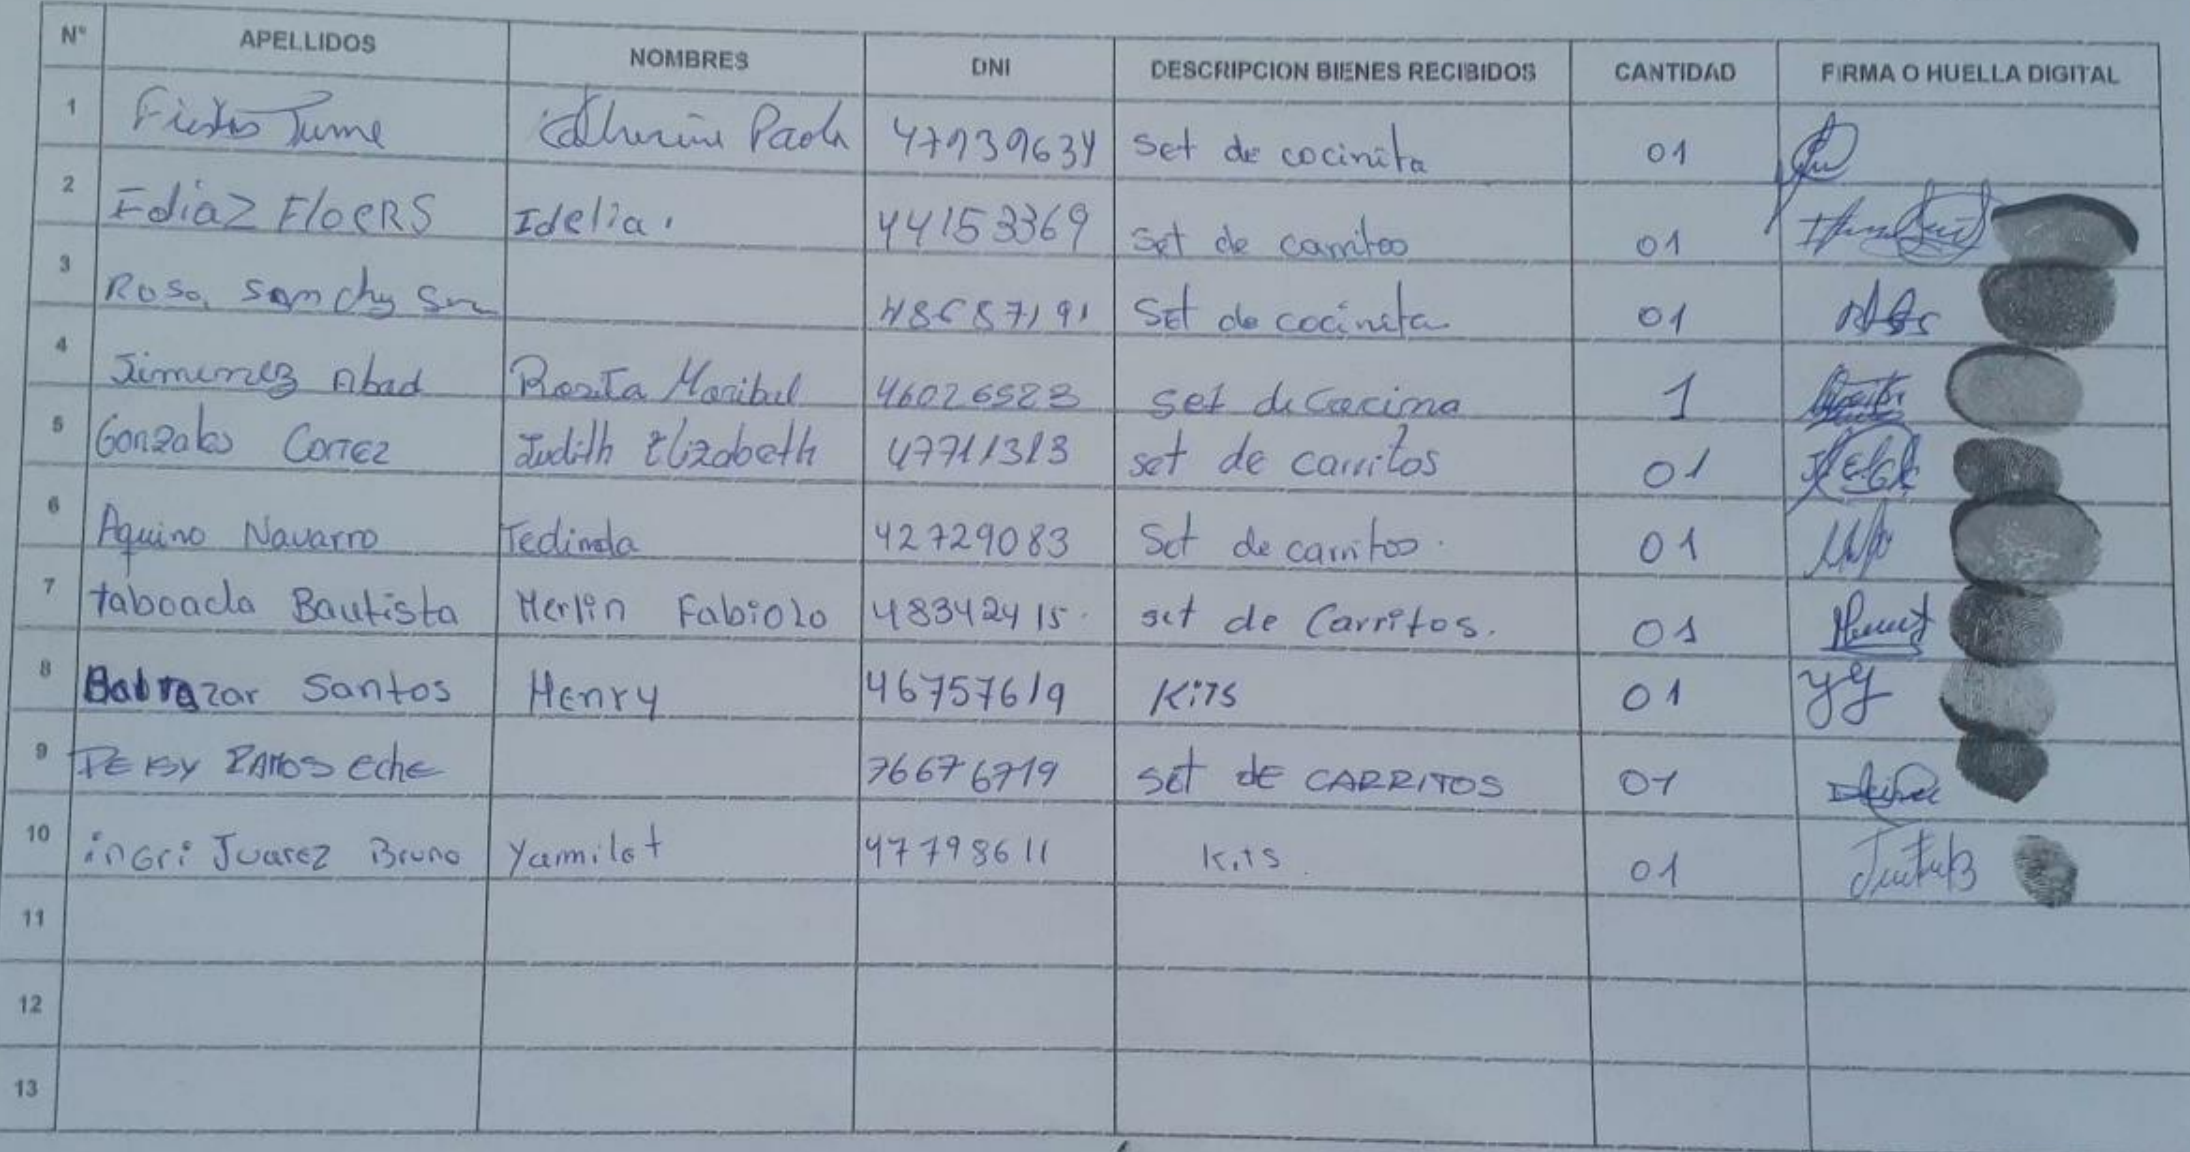 N° APELLIDOS NOMBRES DNI DESCRIPCION BIENES RECIBIDOS CANTIDAD FIRMA O HUELLA DIGITAL
1 Tume Paola 47939634 set de cocinita 01
2 Ediaz FloERS Idelia. 44153369 set de carritos 01
3 Rosa 01 set de cocinita
4 Jimenez Abad Rosita Maribel 46026523 set de Cocina 1
5 Gonzales Cortez Judith Elizabeth 47711313 set de carritos 01
6 Aquino Navarro Tedinda 42729083 Set de carritos. 01
7 taboada Bautista Merlin Fabiola 48342415. set de Carritos. 01
8 Santos Henry 46757619 Kits 01
9 RAMOS EchE 76676719 set dE CARRITOS 01
10 inGri Juarez Bruno Yamilet 47798611 Kits. 01
11
12
13